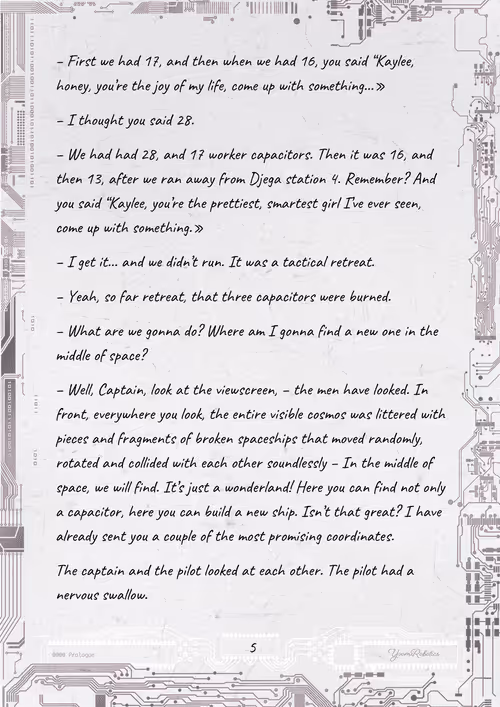 – First we had 17, and then when we had 16, you said “Kaylee,
honey, you’re the joy of my life, come up with something...»
– I thought you said 28.
– We had had 28, and 17 worker capacitors. Then it was 16, and
then 13, after we ran away from Djega station 4. Remember? And
you said “Kaylee, you’re the prettiest, smartest girl I’ve ever seen,
come up with something.»
– I get it... and we didn’t run. It was a tactical retreat.
– Yeah, so far retreat, that three capacitors were burned.
– What are we gonna do? Where am I gonna find a new one in the
middle of space?
– Well, Captain, look at the viewscreen, – the men have looked. In
front, everywhere you look, the entire visible cosmos was littered with
pieces and fragments of broken spaceships that moved randomly,
rotated and collided with each other soundlessly – In the middle of
space, we will find. It’s just a wonderland! Here you can find not only
a capacitor, here you can build a new ship. Isn’t that great? I have
already sent you a couple of the most promising coordinates.
The captain and the pilot looked at each other. The pilot had a
nervous swallow.
0000 Prologue
5